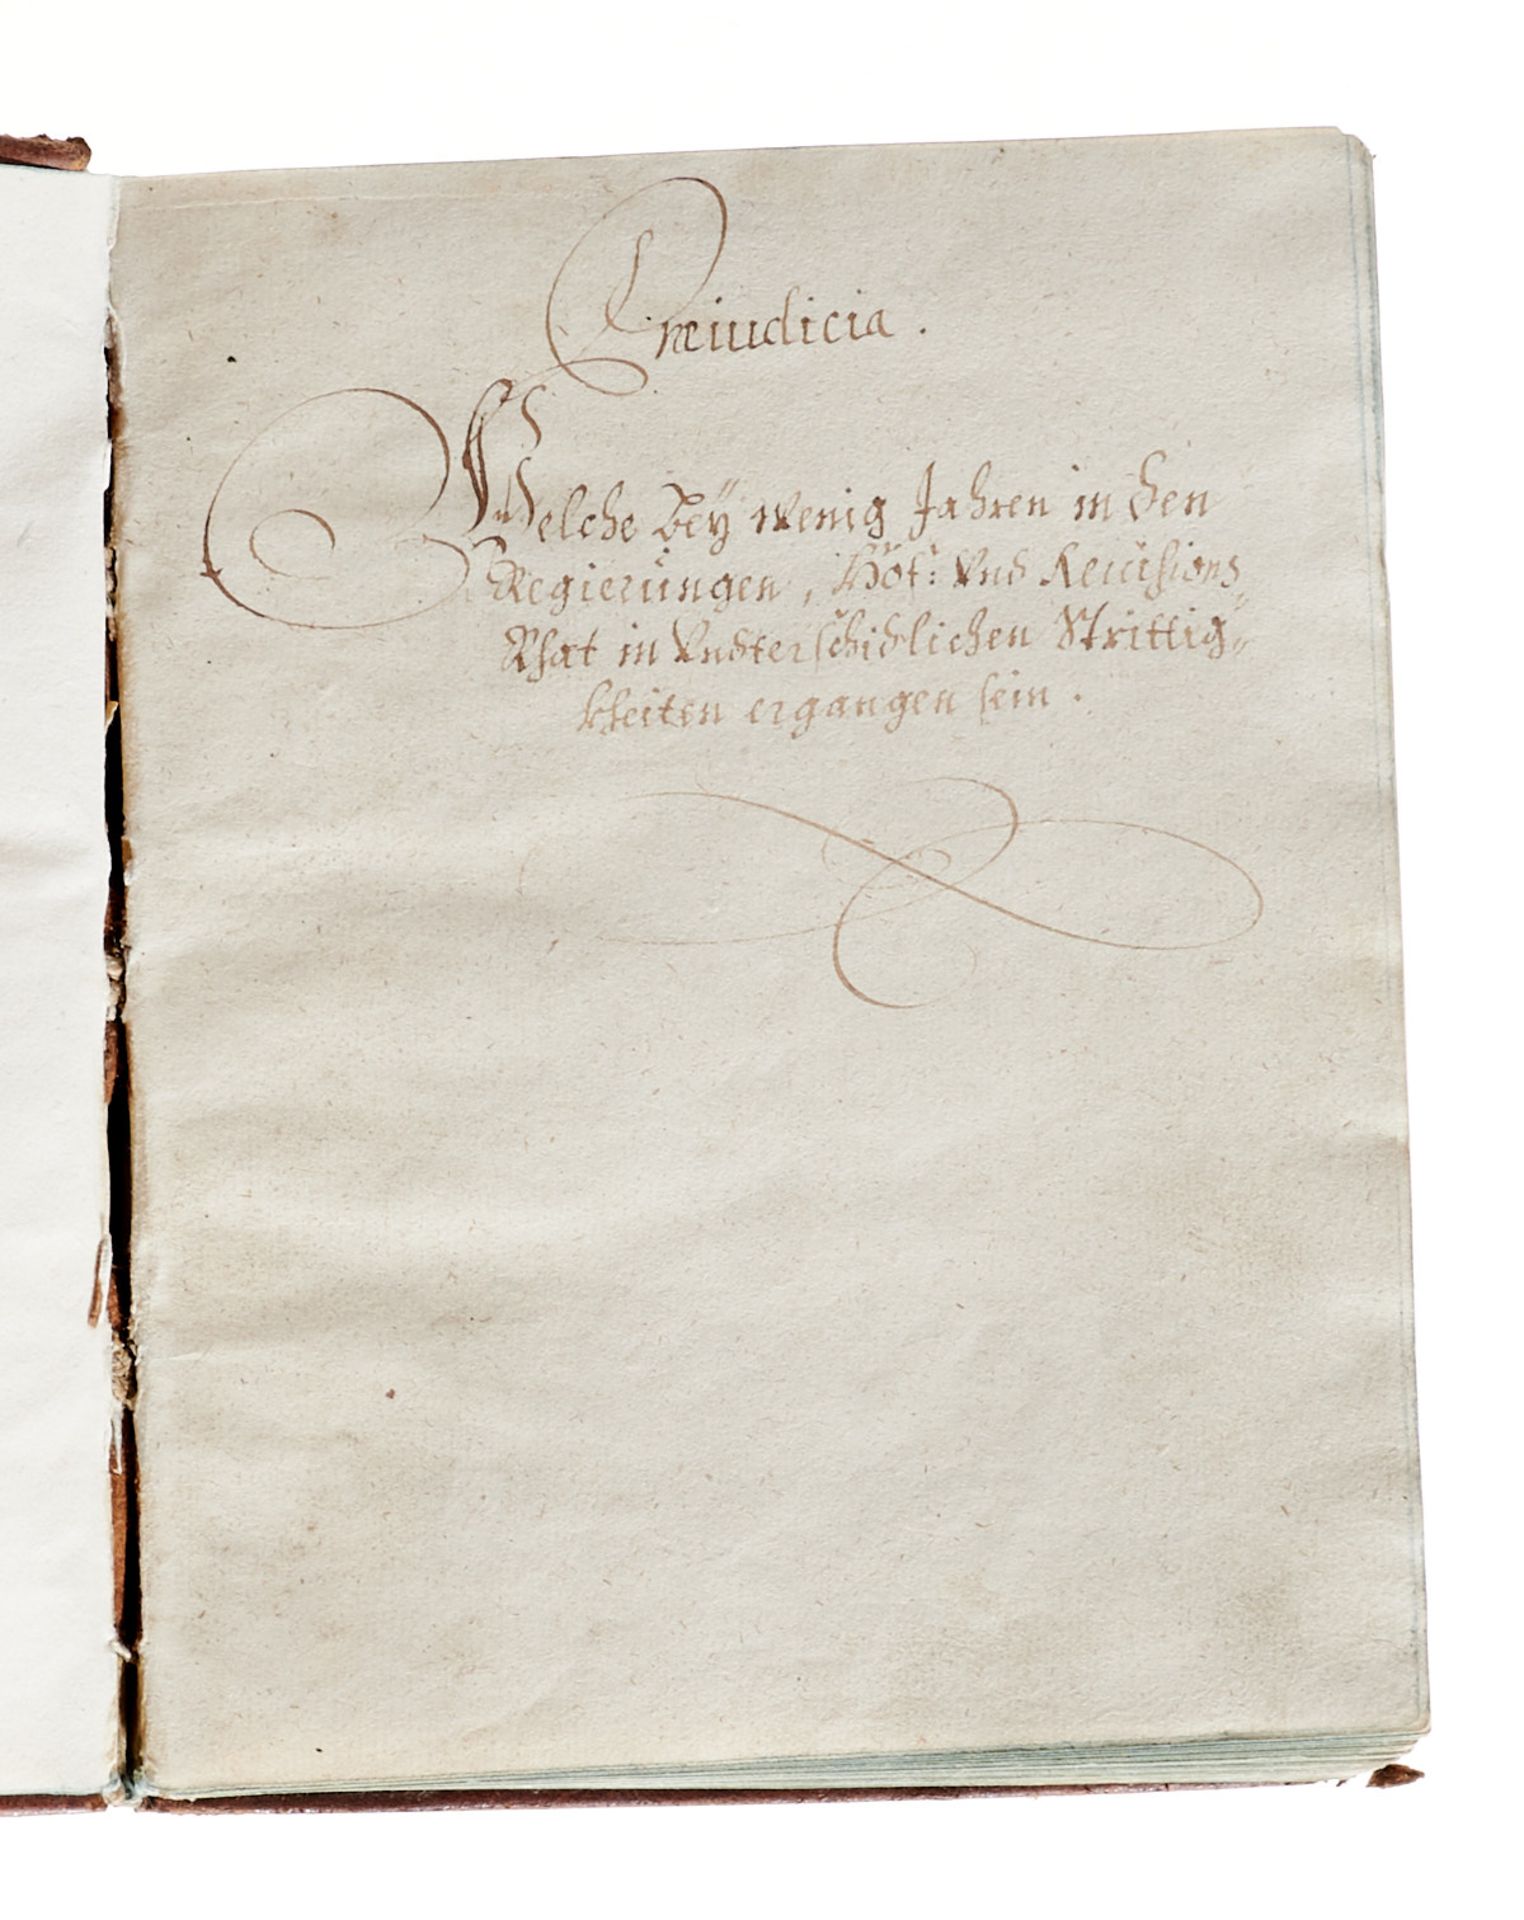 Præiudicia.
Welche beÿ wenig Jahren in den
Regierungen, Hof: Vnd Reuisions„
Rhat in Vndterschidlichen Strittig„
kheiten ergangen sein.